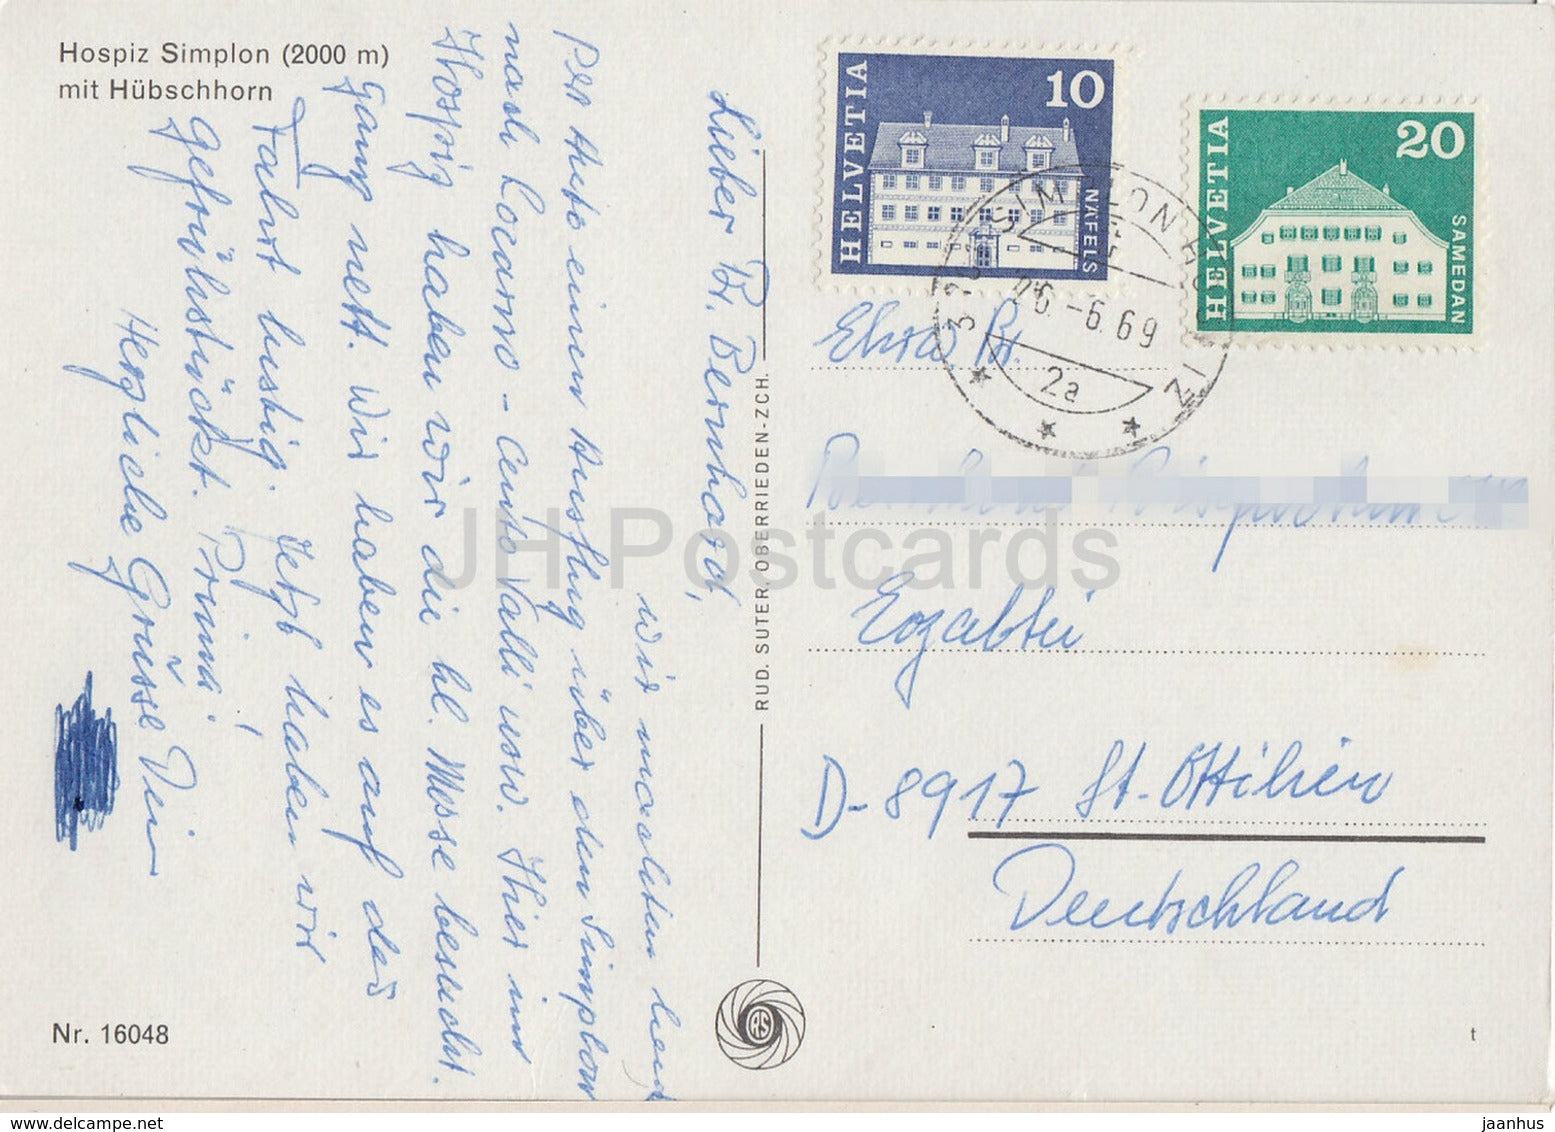 Hospiz Simplon (2000 m)
mit Hübschhorn
Lieber Br. Bernhard,
wir machten heut
per Auto einen Ausflug über den Simplon
nach Locarno - Cento Valli usw. Hier im
Hospiz haben wir die hl. Messe besucht.
ganz nett. Wir haben es auf der
Fahrt lustig. Jetzt haben wir
gefrühstückt. Prima!
Herzliche Grüsse Dein
Nr. 16048
RUD. SUTER, OBERRIEDEN-ZCH.
RS
HELVETIA
10
NÄFELS
HELVETIA
20
SAMEDAN
SIMPLON
26.-6.69
2a
Ehrw. Br.
Erzabtei
D-8917 St. Ottilien
Deutschland
t
JH Postcards
delcampe.net
jaanhus